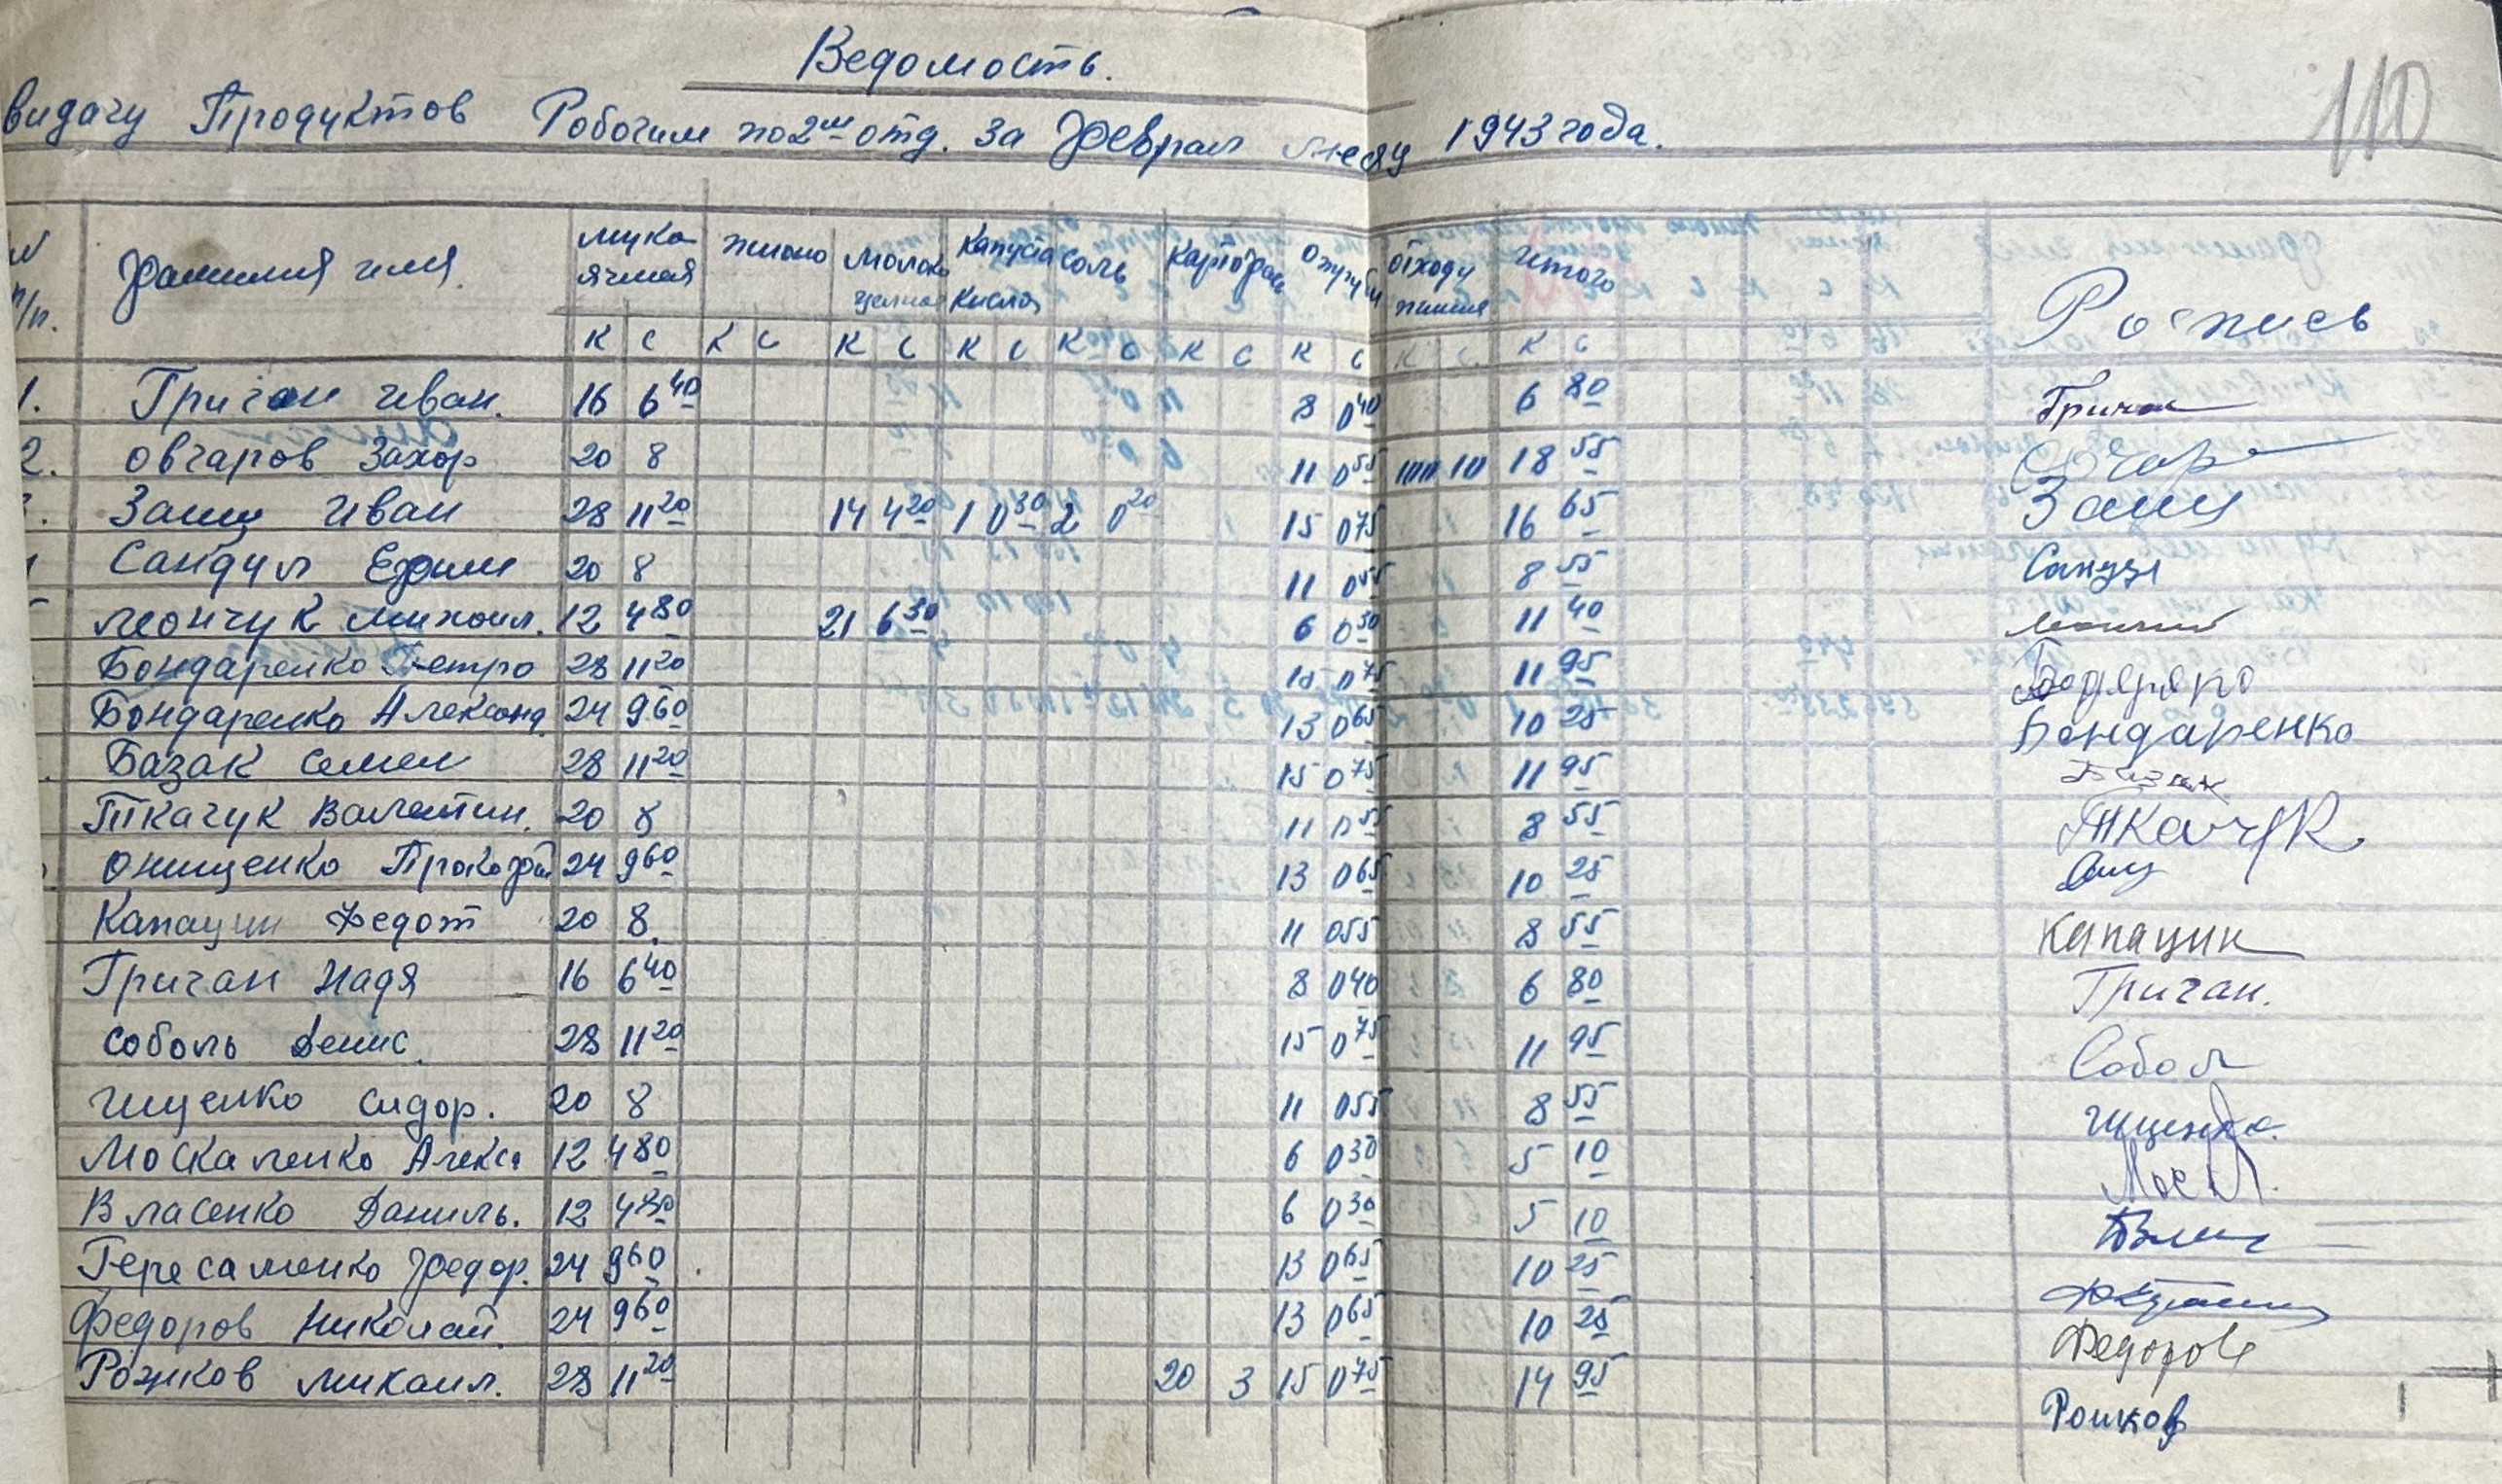 Ведомость.
110
видачу Продуктов Робочим по 2му отд. за Феврал месяц 1943 года.
N п/п. Фамилия имя. мука ячмая пшоно молоко цельное Капуста кисла соль Картофель Отруби отходу пшона итого Роспись
К С К С К С К С К С К С К С К С. К С
1. Тричан Иван. 16 6 40 8 0 40 6 80 Тричан
2. Овчаров Захор 20 8 11 0 55 100 10 18 55 Овчар
Заяц Иван 28 11 20 14 4 20 1 0 30 2 0 20 15 0 75 16 65 Заяц
Сандул Ефим 20 8 11 0 55 8 55 Сандул
Леончук Михоил. 12 4 80 21 6 30 6 0 30 11 40
Бондаренко Петро 28 11 20 15 0 75 11 95
Бондаренко Александ. 24 9 60 13 0 65 10 25 Бондаренко
Базак Семен 28 11 20 15 0 75 11 95 Базак
Ткачук Валентин. 20 8 11 0 55 8 55 Ткачук
Онищенко Прокофий 24 9 60 13 0 65 10 25
Капацин Федот 20 8. 11 0 55 8 55 Капацин
Тричан Надя 16 6 40 8 0 40 6 80 Тричан.
Соболь Денис. 28 11 20 15 0 75 11 95 Собол
Ищенко Сидор. 20 8 11 0 55 8 55 Ищенко.
Москаленко Алекса 12 4 80 6 0 30 5 10 Моск
Власенко Даниль. 12 4 80 6 0 30 5 10
Гересаменко Федор. 24 9 60 13 0 65 10 25
Федоров Николай 24 9 60 13 0 65 10 25 Федоров
Рожков Михаил. 28 11 20 20 3 15 0 75 14 95 Рошков